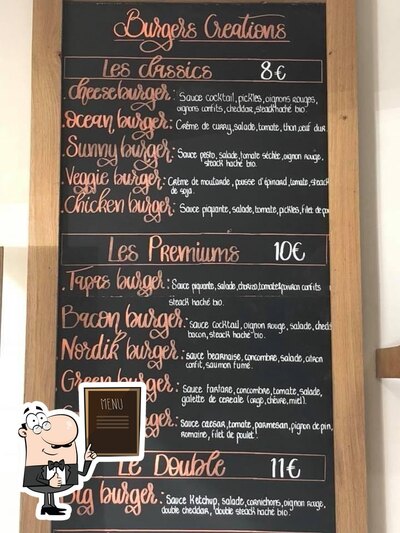 Burgers Creations
Les classics 8€
cheeseburger: Sauce cocktail, pickles, oignons rouges,
oignons confits, cheddar, steack haché bio.
ocean burger: Crème de curry, salade, tomate, thon, oeuf dur
Sunny burger: Sauce pesto, salade, tomate séchée, oignon rouge,
steack haché bio.
Veggie burger: Crème de moutarde, pousse d'épinard, tomate, steack
de soja.
Chicken burger: Sauce piquante, salade, tomate, pickles, filet de
Les Premiums 10€
Tapas burger: Sauce piquante, salade, chorizo, tomate, poivron confits
steack haché bio.
Bacon burger: sauce cocktail, oignon rouge, salade,
bacon, steack haché bio.
Nordik burger: sauce bearnaise, concombre, salade, citron
confit, saumon fumé.
Green burger: Sauce tartare, concombre, tomate, salade,
galette de cereale (orge, chèvre, miel).
MENU
sauce caesar, tomate, parmesan, pignon de pin,
romaine, filet de poulet.
Le Double 11€
Big burger: Sauce Ketchup, salade, cornichons, oignon rouge,
double cheddar, double steack haché bio.